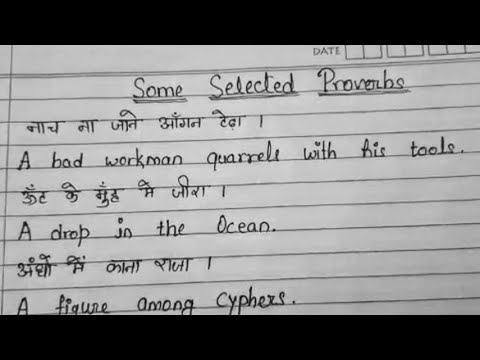 DATE
Some Selected Proverbs
नाच ना जाने आँगन टेढ़ा ।
A bad workman quarrels with his tools.
ऊँट के मुँह मे जीरा ।
A drop in the Ocean.
अंधों में काना राजा ।
A figure among cyphers.